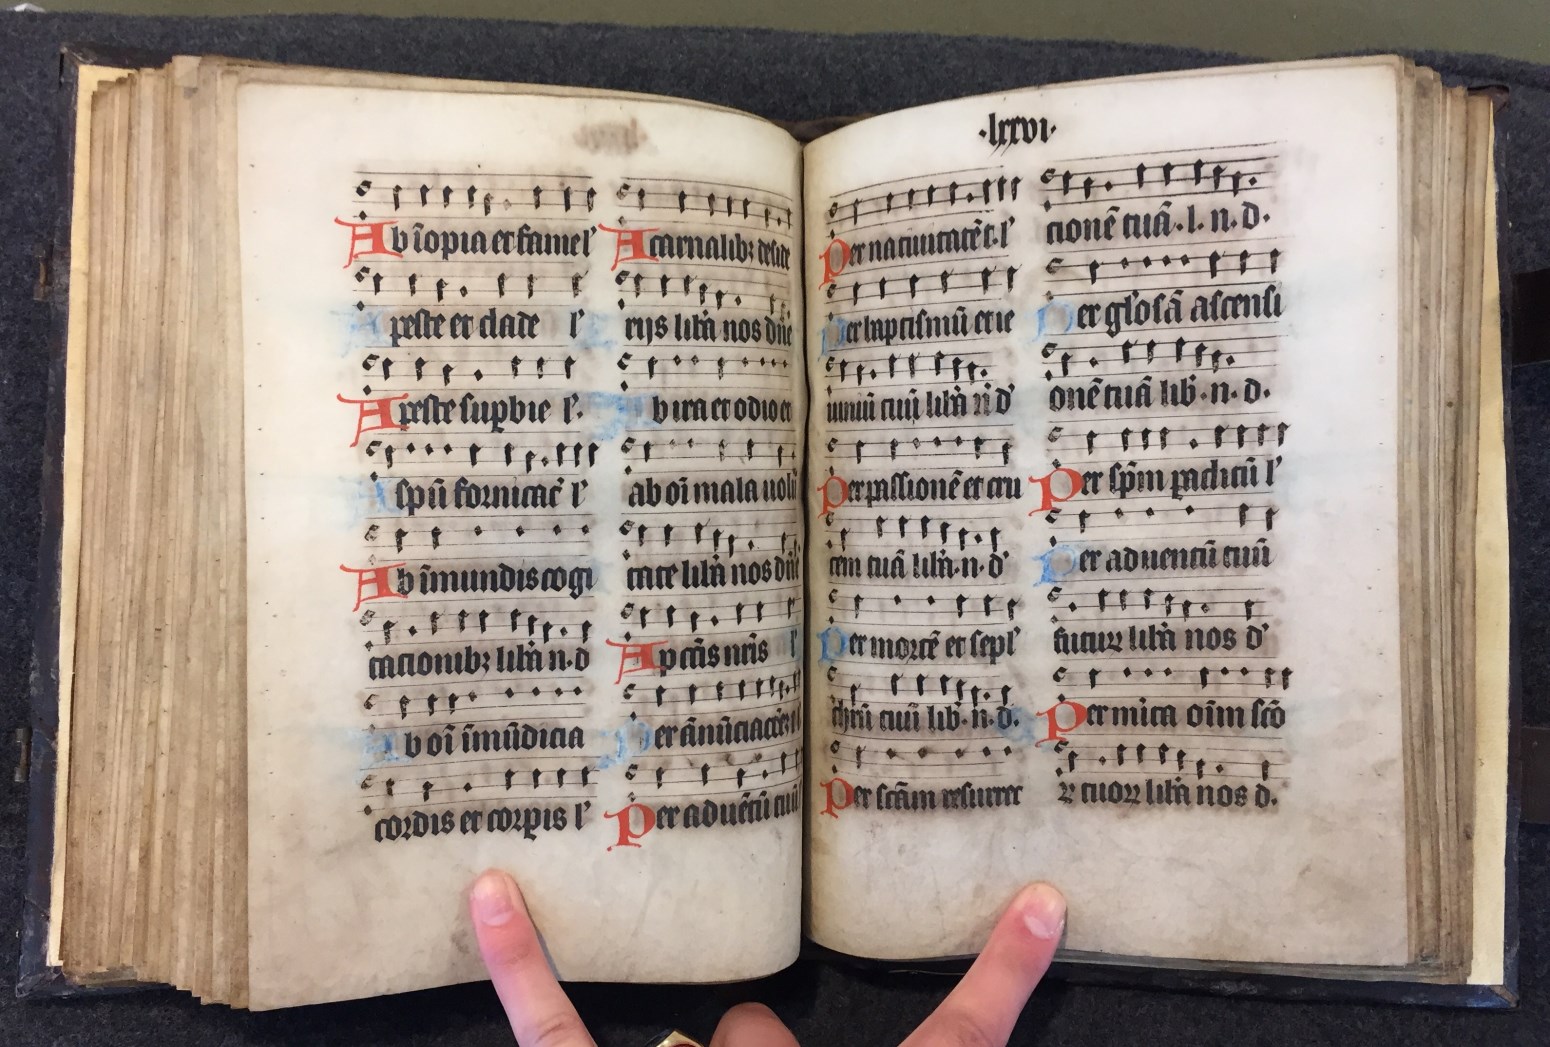 Ab īopia et fame l'
A peste et clade l'
A peste supbie l'.
A spū fornicac̄ l'
Ab īmundis cogi
tacionibꝫ lib̄a n·d
Ab oī īmūdicia
cordis et corpis l'
A carnalibꝫ deside
rijs lib̄a nos dn̄e
Ab ira et odio et
ab oī mala volū
tate lib̄a nos dn̄e
A pctīs nr̄is l'
Per ānūciac̄oēꝫ t l
Per aduētū tuū
·lxxvi·
Per natiuitatē t·l'
Per baptismū et ie
iuniū tuū lib̄a n̄ d'
Per passionē et cru
cem tuā lib̄a·n·d'
Per mortē et sepl'
chrū tuū lib·n·d·
Per scām resurrec
tionē tuā·l·n·d·
Per glōsā ascensi
onē tuā lib·n·d·
Per spm paclitū l'
Per aduentū tuū
futuꝝ lib̄a nos d'
Per mīta oīm scō
ꝝ tuoꝝ lib̄a nos d·